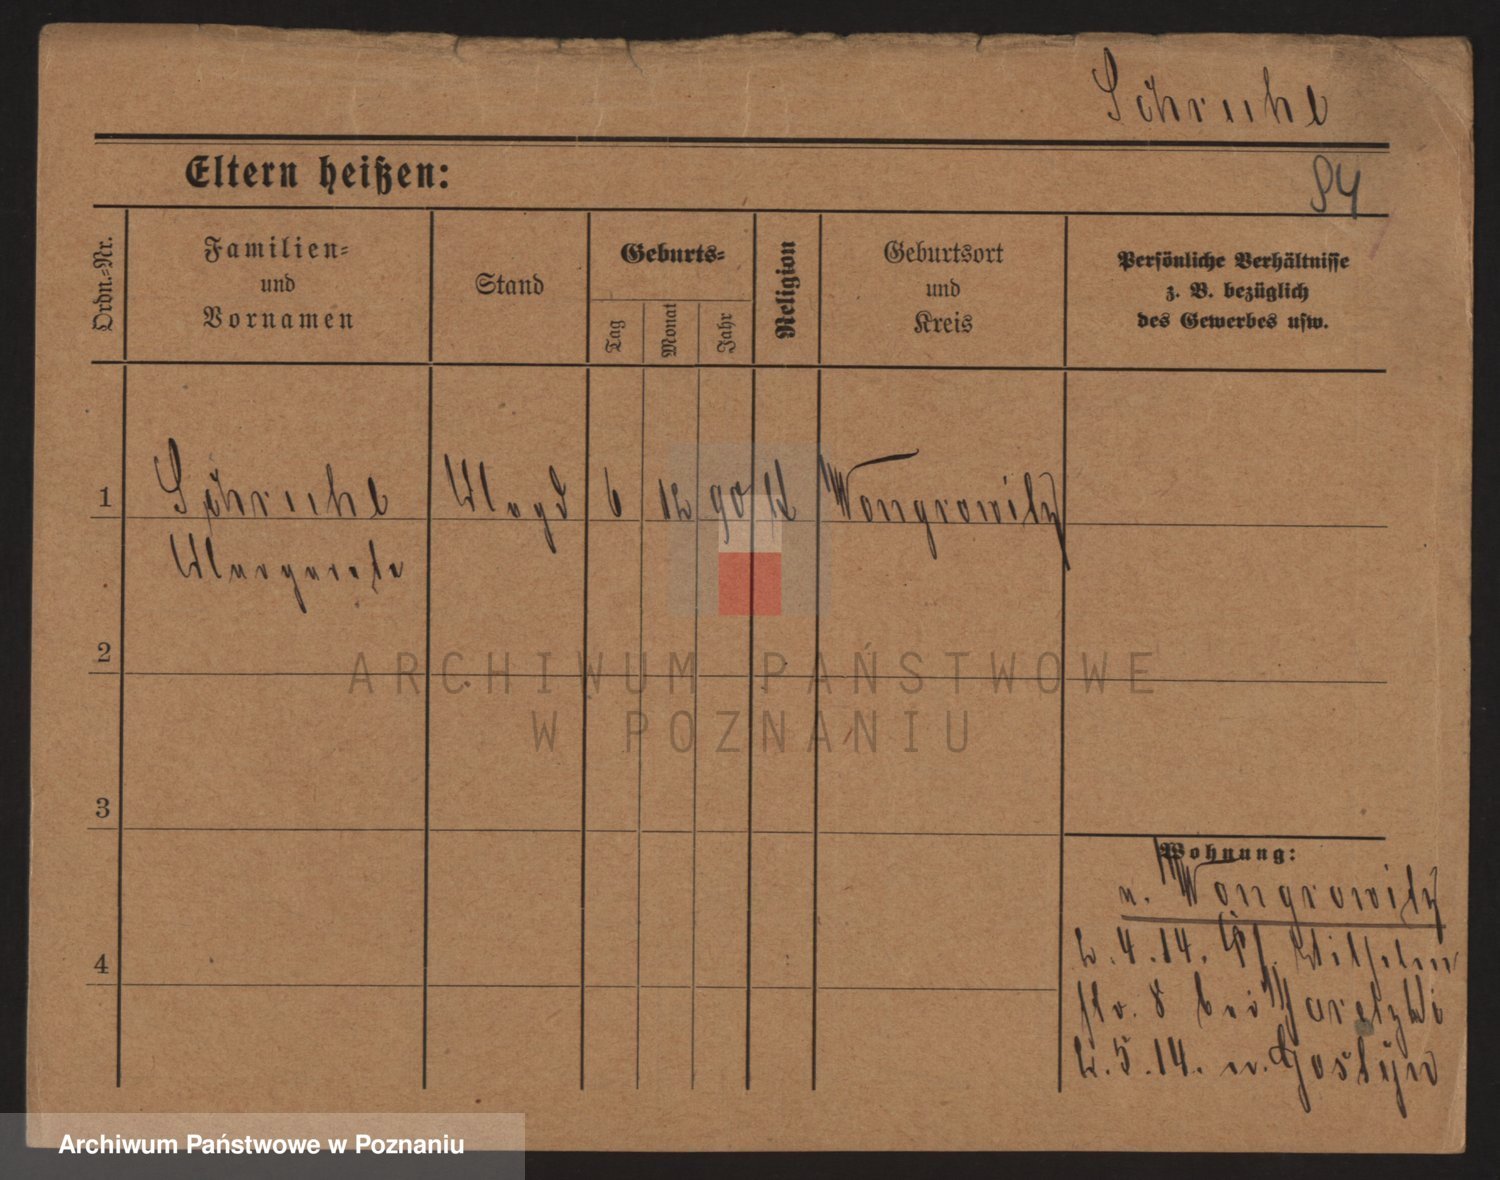 Schruhl
Eltern heißen:
84
Ordn.=Nr.
Familien=
und
Vornamen
Stand
Geburts=
Tag
Monat
Jahr
Religion
Geburtsort
und
Kreis
Persönliche Verhältnisse
z. B. bezüglich
des Gewerbes usw.
1
Magd 6 12 90 K Wongrowitz
Margarete
2
3
4
Wohnung:
n. Wongrowitz
2.4.14. Wilhelm
str. 8 bei
2.5.14. n. Gostyn
ARCHIWUM PAŃSTWOWE
W POZNANIU
Archiwum Państwowe w Poznaniu